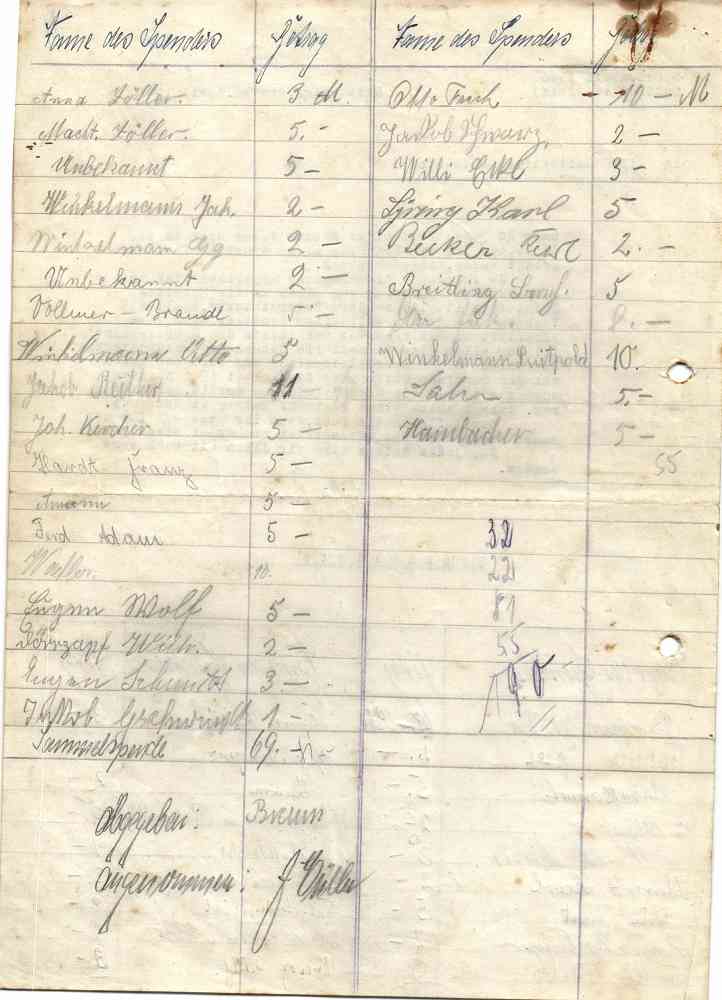 Name des Spenders Betrag Name des Spenders
Anna Zöller. 3 M. Otto 10 – M
Zöller. 5.– Jakob Schwarz. 2 –
Unbekannt 5 – Willi Eckl 3 –
Winkelmann Joh. 2 – Karl 5
Winkelmann Gg 2 – Becker Karl 2. –
Unbekannt 2 – Breitling 5
Vollmer – Brandl 5 – 8. –
Winkelmann Otto 5 Winkelmann Luitpold 10.
Jakob 11 – 5.–
Joh. Kircher 5 – Hambacher 5 –
Hardt Franz 5 – 55
Amann 5 –
Ferd Adam 5 – 32
10. 22
Eugen Wolf 5 – 81
Wilh. 2 – 55
Eugen Schmidt 3 – 190
Jakob Geschwindt 1 –
Sammelspende 69. –
Abgegeben: Braun
Angenommen: J Müller